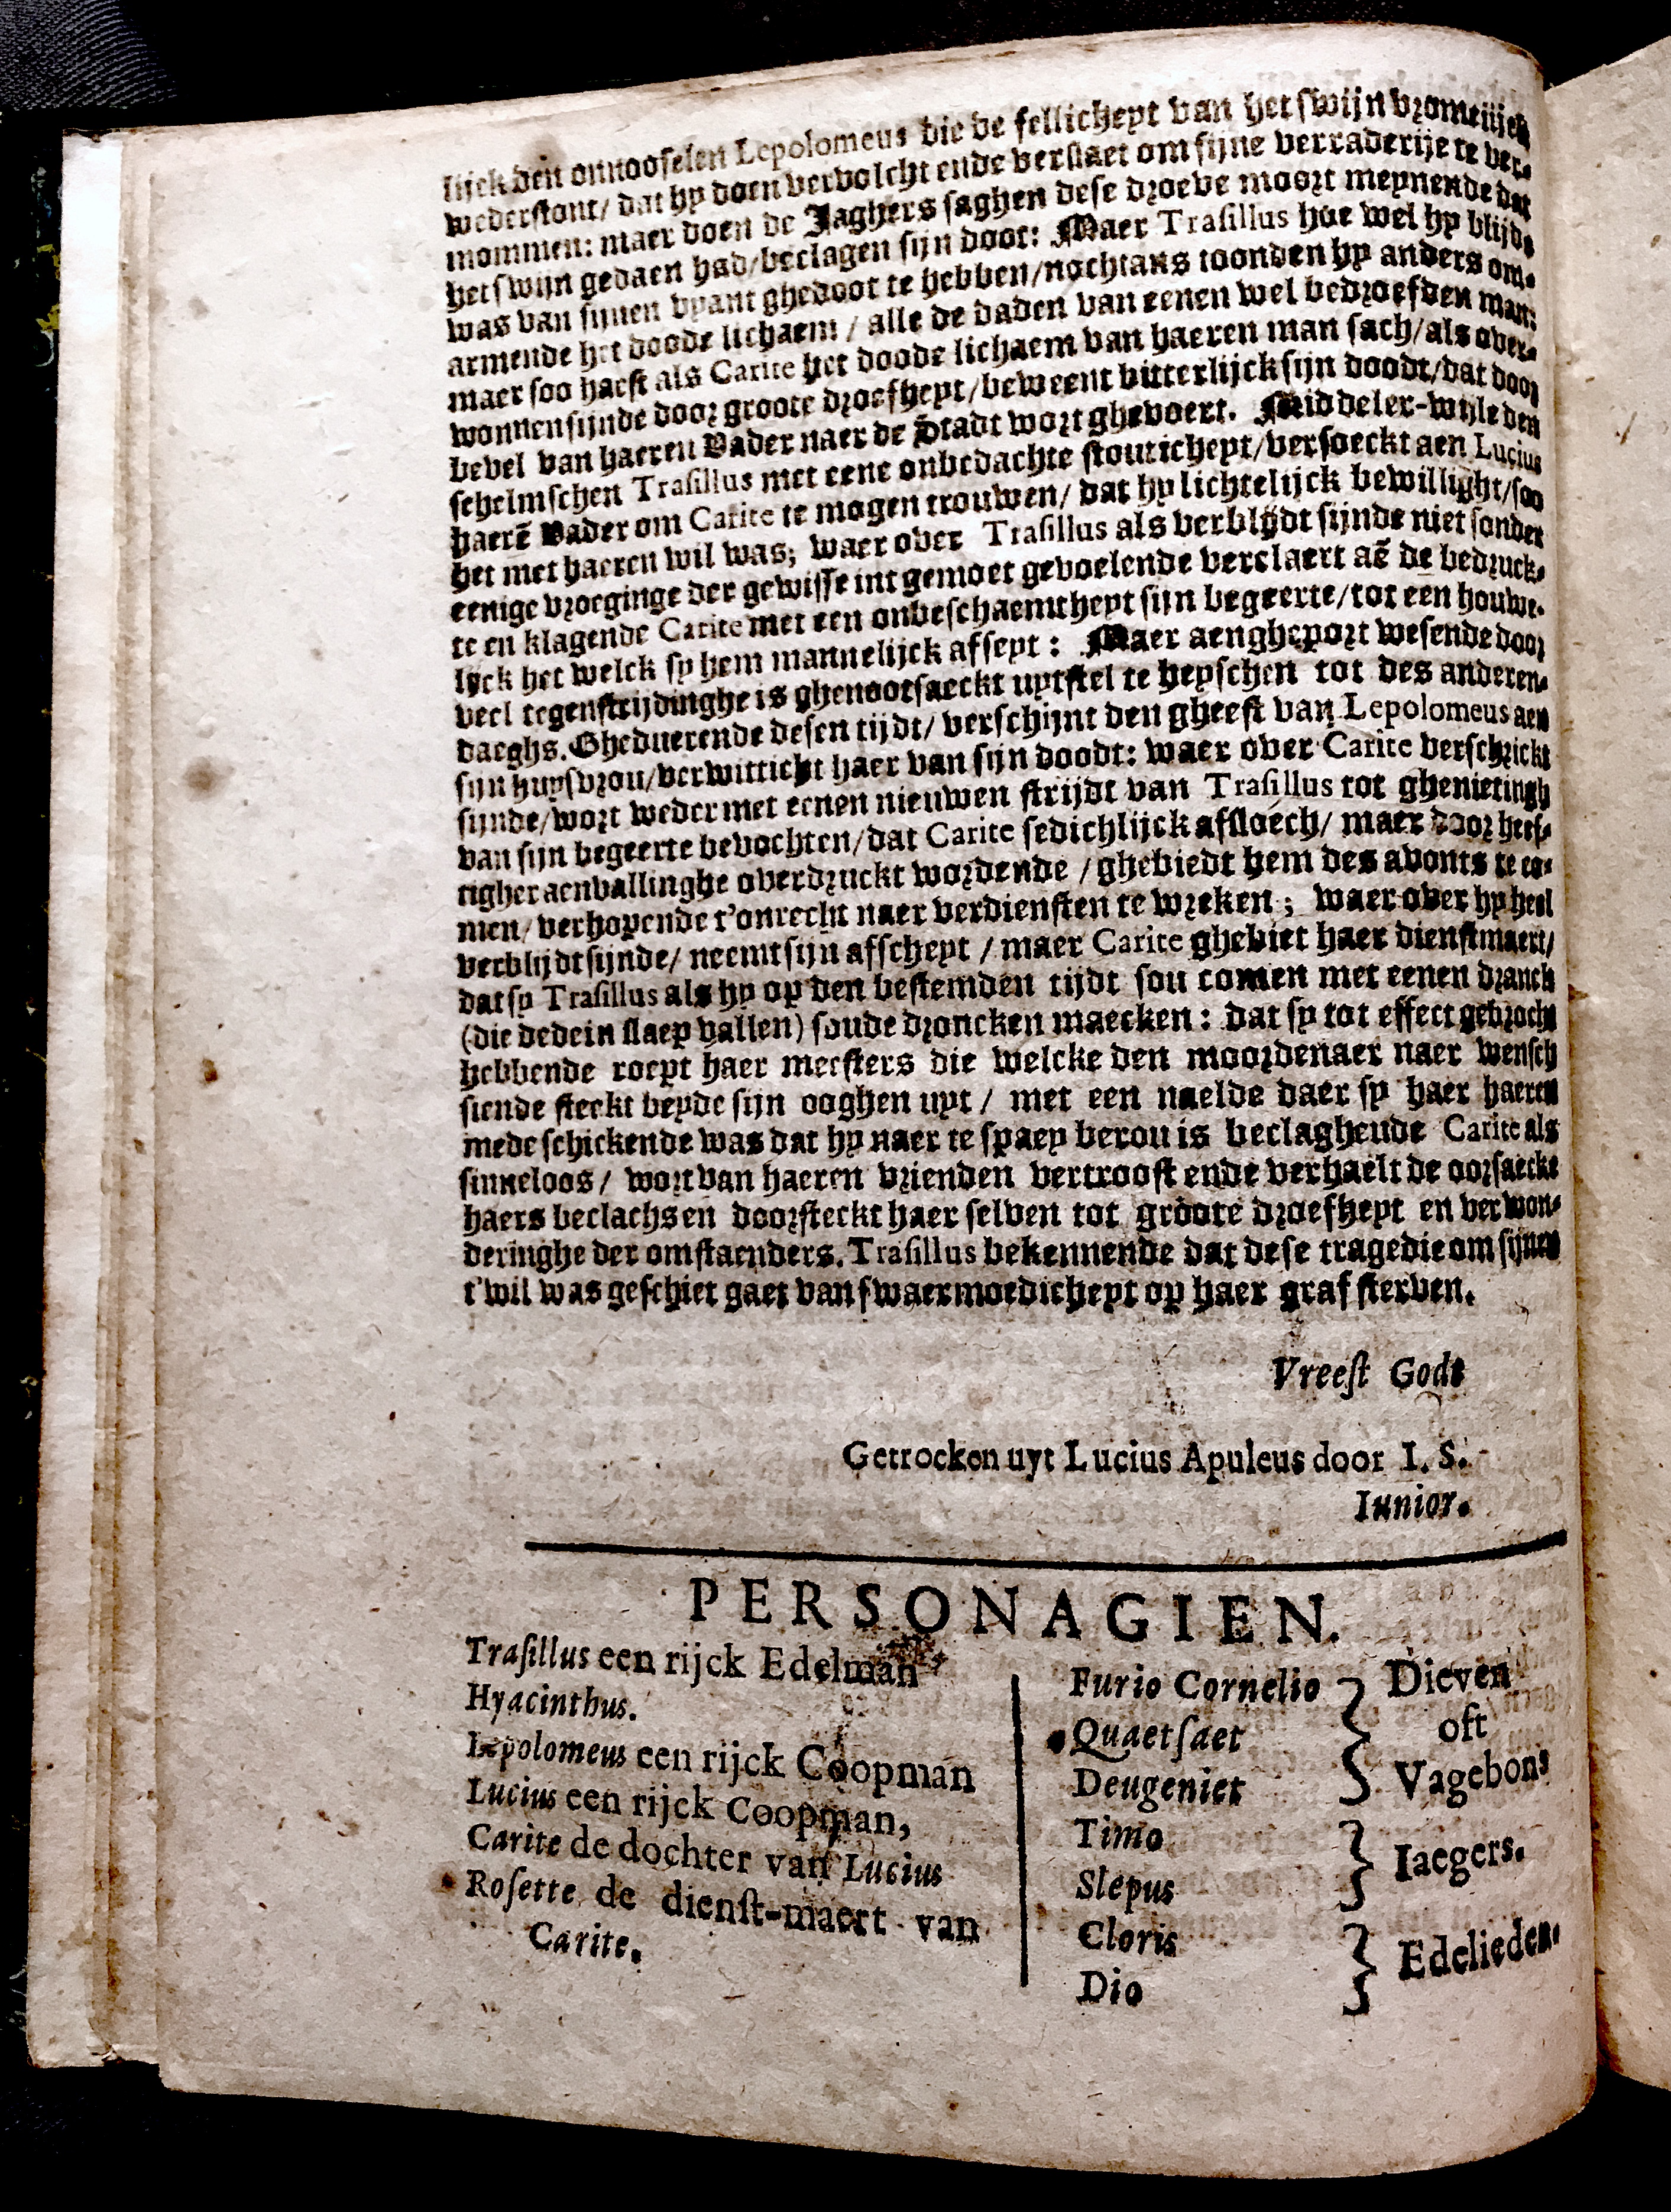 lijck den onnooselen Lepolomeus die de fellicheyt van het swijn vromelijck
wederstont/ dat hy doen vervolcht ende verslaet om sijne verraderije te ver-
mommen: maer doen de Jaghers saghen dese droeve moort meynende dat
het swijn gedaen had/beclagen sijn doot: Maer Trasillus hoe wel hy blijde
was van sijnen vyant ghedoot te hebben/nochtans toonden hy anders om-
armende het doode lichaem / alle de daden van eenen wel bedroefden man:
maer soo haest als Carite het doode lichaem van haeren man sach/als over-
wonnen sijnde door groote droefheyt/beweent bitterlijck sijn doodt/dat door
bevel van haeren Vader naer de Stadt wort ghevoert. Middeler-wijle den
schelmschen Trasillus met eene onbedachte stouticheyt/versoeckt aen Lucius
haerẽ Vader om Carite te mogen trouwen/ dat hy lichtelijck bewillight/soo
het met haeren wil was; waer over Trasillus als verblijdt sijnde niet sonder
eenige vroeginge der gewisse int gemoet gevoelende verclaert aẽ de bedruck-
te en klagende Carite met een onbeschaemtheyt sijn begeerte/tot een houwe-
lijck het welck sy hem mannelijck afseyt : Maer aengheport wesende door
veel tegenstrijdinghe is ghenootsaeckt uytstel te heyschen tot des anderen-
daeghs. Gheduerende desen tijdt/ verschijnt den gheest van Lepolomeus aen
sijn huysvrou/verwitticht haer van sijn doodt: waer over Carite verschrickt
sijnde/wort weder met eenen nieuwen strijdt van Trasillus tot ghenietingh
van sijn begeerte bevochten/dat Carite sedichlijck afsloech/ maer door heef-
tigher aenvallinghe overdruckt wordende / ghebiedt hem des avonts te co-
men/ verhopende t'onrecht naer verdiensten te wreken ; waer over hy heel
verblijdt sijnde/ neemt sijn afscheyt / maer Carite ghebiet haer dienstmaert/
dat sy Trasillus als hy op den bestemden tijdt sou comen met eenen dranck
(die dede in slaep vallen) soude droncken maecken : dat sy tot effect gebrocht
hebbende roept haer meesters die welcke den moordenaer naer wensch
siende steckt beyde sijn ooghen uyt / met een naelde daer sy haer haeren
mede schickende was dat hy naer te spaey berou is beclaghende Carite als
sinneloos / wort van haeren vrienden vertroost ende verhaelt de oorsaecke
haers beclachs en doorsteckt haer selven tot groote droefheyt en verwon-
deringhe der omstaenders. Trasillus bekennende dat dese tragedie om sijnen
t'wil was geschiet gaet van swaermoedicheyt op haer graf sterven.
Vreest Godt
Getrocken uyt Lucius Apuleus door I. S.
Iunior.
PERSONAGIEN.
Trasillus een rijck Edelman
Hyacinthus.
Lepolomeus een rijck Coopman
Lucius een rijck Coopman,
Carite de dochter van Lucius
Rosette de dienst-maert van
Carite.
Furio Cornelio
Quaetsaet
Deugeniet
Dieven
oft
Vagebons
Timo
Slepus
Iaegers.
Cloris
Dio
Edelieden.